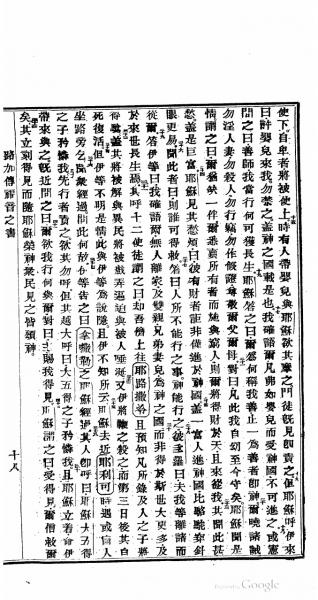 使下自卑者將被使上時有人帶嬰兒與耶穌欲其摩之門徒旣見卽責之但耶穌呼伊來
曰許嬰兒來我勿禁之蓋神之國載是也我確語爾凡弗如嬰兒而受神國不可進之或憲
問之曰善師我當行何可獲長生耶穌答之曰爾爲何稱我善止一爲善者卽神爾曉諸誡
勿淫人妻勿殺人勿行竊勿作假證尊敬爾父爾母對曰凡此我自幼至今守矣耶穌聞是
情謂之曰爾猶缺一件爾悉賣所有者而施與窮人則爾將得財於天且來從我其聞此甚
愁蓋是巨富耶穌見其愁煩曰彼有財者詎非難進於神國蓋一富人進神國比駱駝穿針
眼更易聞此者曰則誰可得救答曰人所不能行之事神能行之彼多羅曰夫我等離諸而
從爾答伊等曰我確語爾無人離家及雙親兄弟妻兒爲神之國而非得於斯世大更多及
於來世長生焉其呼十二使徒謂之曰吾儕上往耶路撒冷且預知凡所錄及人之子將
得驗蓋其將被解與異民將被戲弄逼迫與被人唾涎又伊將鞭之殺之而第三日後其自
死復活但伊等不明是情此與伊等爲說隱且伊不知所云耶穌去近耶利可時遇或盲人
坐路旁乞聞衆經過問此何故伊等告之曰拿撒勒之耶穌經過其人卽呼曰耶穌大五得
之子矜憐我先行者責之欲其勿呼但其越大呼曰大五得之子矜憐我且耶穌立着令伊
帶來與之旣近問之曰爾欲我行何與爾對曰主賜我得見耶穌謂之曰受得見爾信救爾
矣其立刻得見而隨耶穌榮神衆民見之皆頌神
路加傳福音之書 十八
Digitized by Google